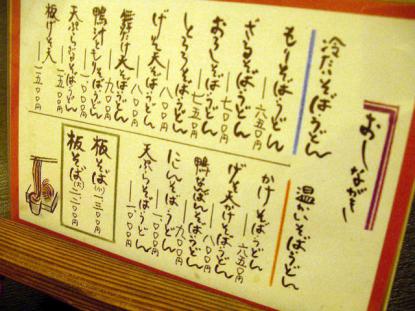 おしながき
冷たいそばうどん
もりそばうどん 六五〇円
ざるそばうどん 七〇〇円
おろしそばうどん 七五〇円
とろろそばうどん
げそ天そばうどん 八〇〇円
舞茸天そばうどん 九〇〇円
鴨汁もりそばうどん 一、〇〇〇円
天ぷらそばうどん 一、五〇〇円
板げそ天 一、五〇〇円
温かいそばうどん
かけそばうどん 六五〇円
げそ天かけそばうどん 八〇〇円
鴨なばんそばうどん 九〇〇円
にしんそばうどん 一、〇〇〇円
天ぷらそばうどん 一、〇〇〇円
板そば(小) 一、三〇〇円
板そば(大) 二、二〇〇円